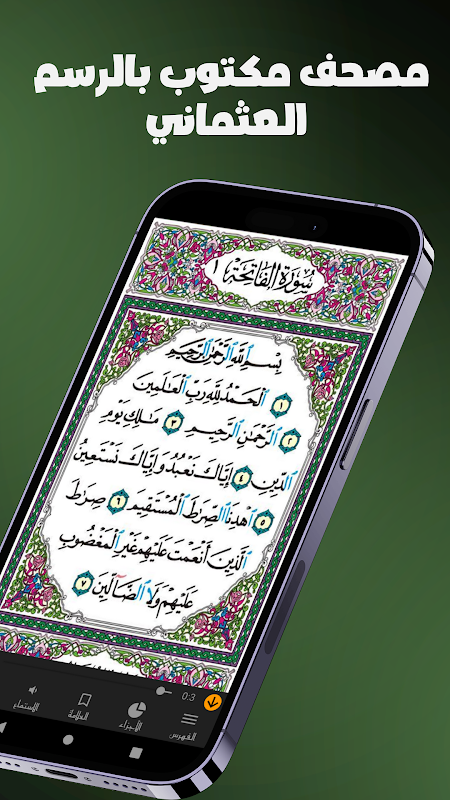 مصحف مكتوب بالرسم
العثماني
سُورَةُ الفَاتِحَةِ ١
بِسْمِ اللَّهِ الرَّحْمَٰنِ الرَّحِيمِ
١ الْحَمْدُ لِلَّهِ رَبِّ الْعَالَمِينَ
٢ الرَّحْمَٰنِ الرَّحِيمِ ٣ مَلِكِ يَوْمِ
الدِّينِ ٤ إِيَّاكَ نَعْبُدُ وَإِيَّاكَ نَسْتَعِينُ
٥ اهْدِنَا الصِّرَاطَ الْمُسْتَقِيمَ ٦ صِرَاطَ
الَّذِينَ أَنْعَمْتَ عَلَيْهِمْ غَيْرِ الْمَغْضُوبِ
عَلَيْهِمْ وَلَا الضَّالِّينَ ٧
0:3
الفهرس الأجزاء العلامة الإستماع